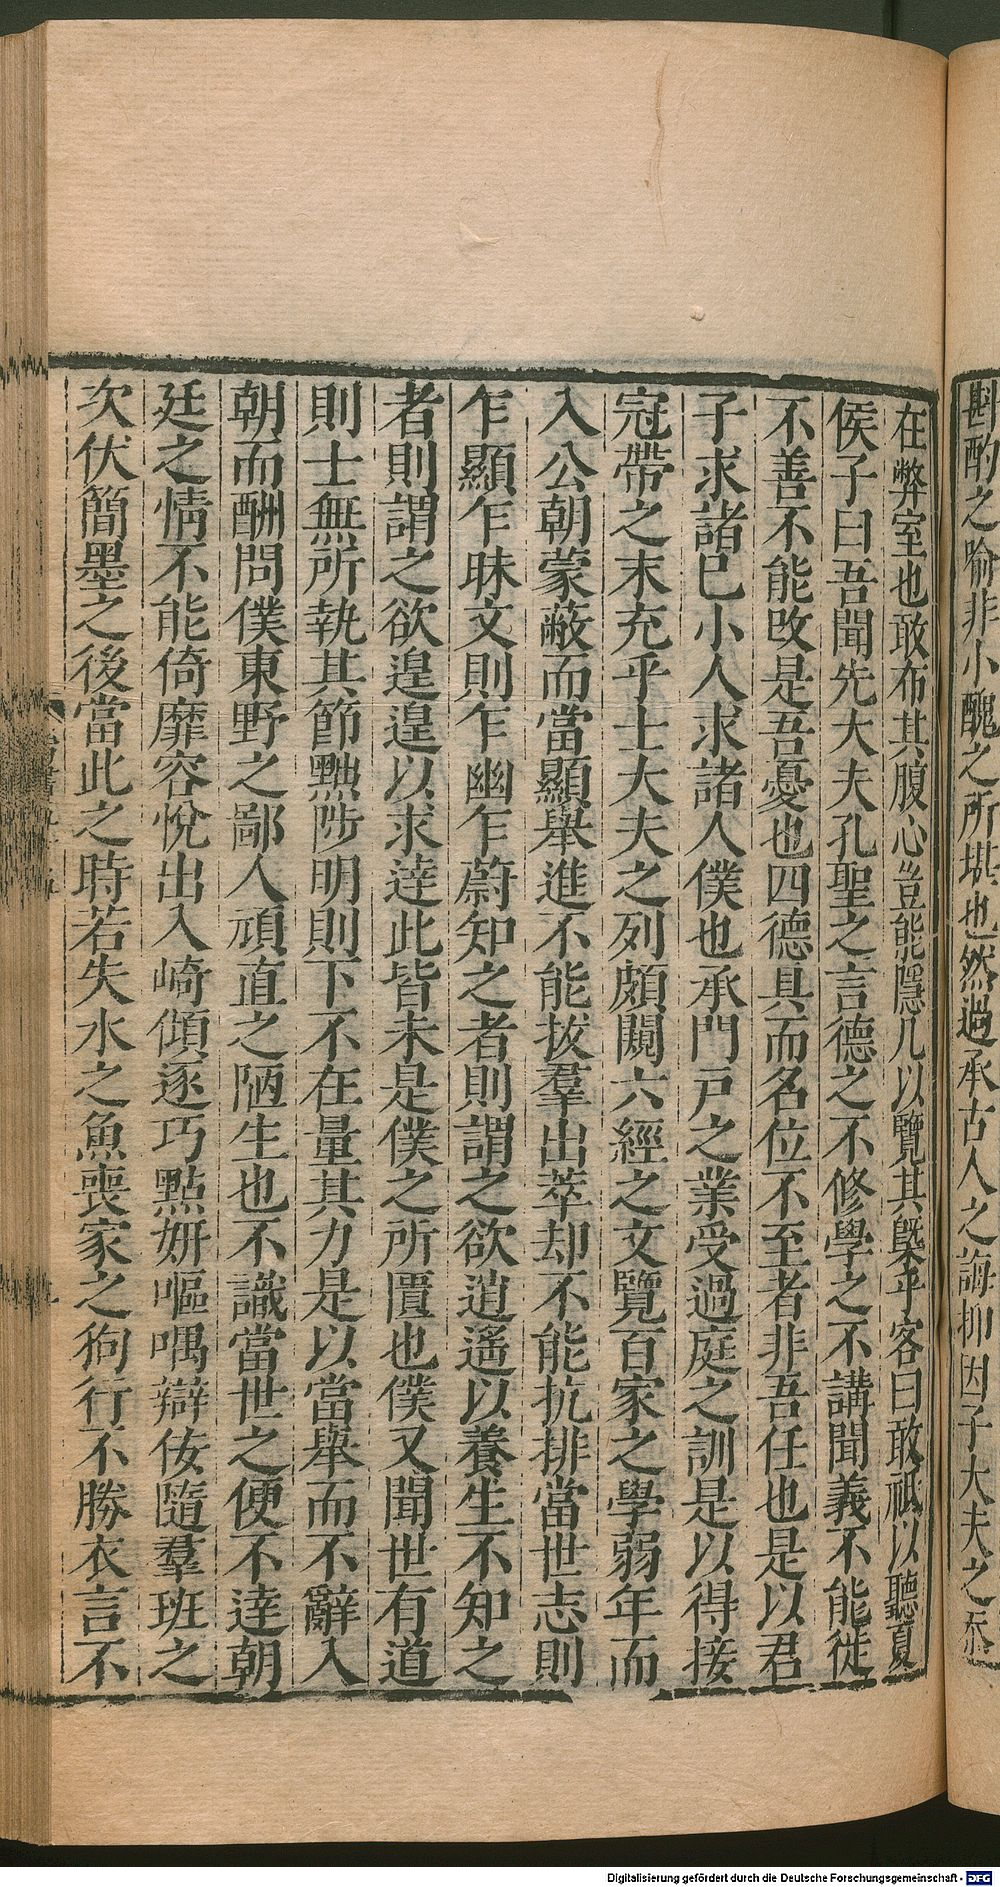 斟酌之喻非小醜之所堪也然過承古人之誨抑因子大夫之忝
在弊室也敢布其腹心豈能隱几以覽其槩乎客曰敢祗以聽夏
侯子曰吾聞先大夫孔聖之言德之不修學之不講聞義不能徙
不善不能改是吾憂也四德具而名位不至者非吾任也是以君
子求諸己小人求諸人僕也承門戸之業受過庭之訓是以得接
冠帶之末充乎士大夫之列頗闚六經之文覽百家之學弱年而
入公朝蒙蔽而當顯舉進不能拔羣出萃却不能抗排當世志則
乍顯乍昧文則乍幽乍蔚知之者則謂之欲逍遙以養生不知之
者則謂之欲遑遑以求逹此皆未是僕之所匱也僕又聞世有道
則士無所執其節黜陟明則下不在量其力是以當舉而不辭入
朝而酬問僕東野之鄙人頑直之陋生也不識當世之便不逹朝
廷之情不能倚靡容恱出入崎傾逐巧點妍嘔喁辯佞隨羣班之
次伏簡墨之後當此之時若失水之魚喪家之狗行不勝衣言不
Digitalisierung gefördert durch die Deutsche Forschungsgemeinschaft - DFG